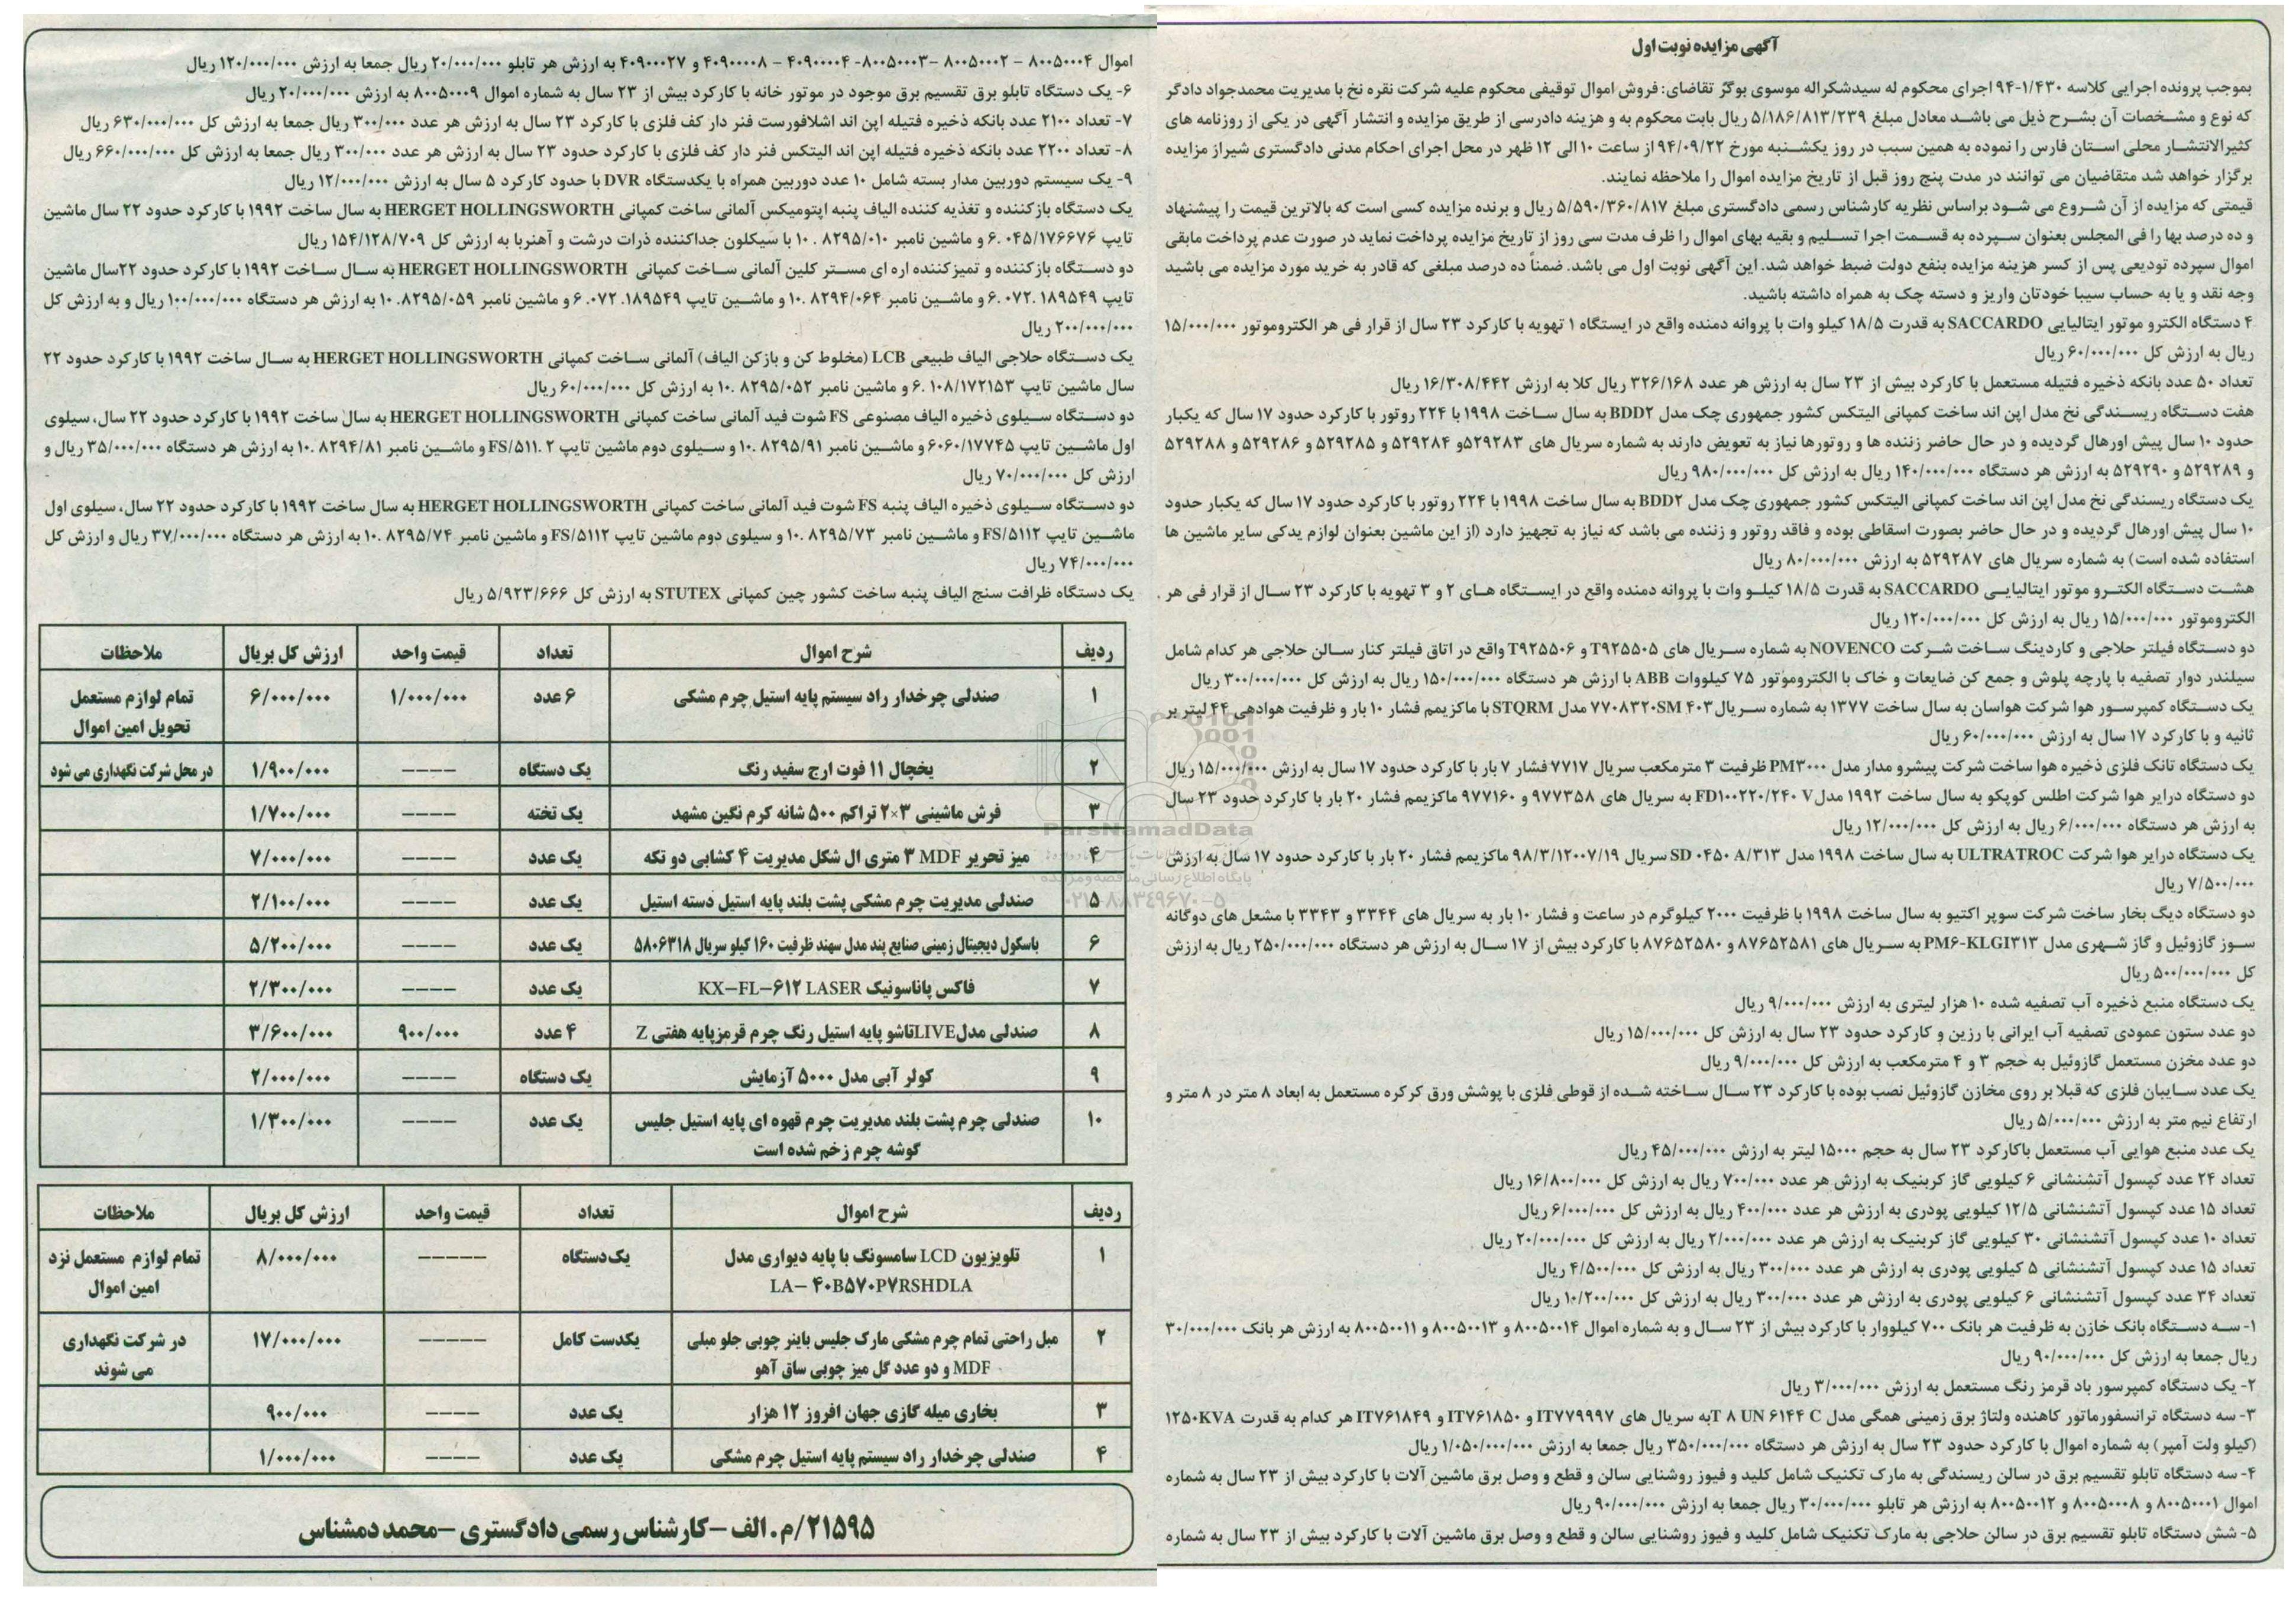 آگهی مزایده نوبت اول
بموجب پرونده اجرایی کلاسه ۹۴-۱/۴۳۰ اجرای محکوم له سیدشکراله موسوی بوگر تقاضای: فروش اموال توقیفی محکوم علیه شرکت نقره نخ با مدیریت محمدجواد دادگر
که نوع و مشخصات آن بشرح ذیل می باشد معادل مبلغ ۵/۱۸۶/۸۱۳/۲۳۹ ریال بابت محکوم به و هزینه دادرسی از طریق مزایده و انتشار آگهی در یکی از روزنامه های
کثیرالانتشار محلی استان فارس را نموده به همین سبب در روز یکشنبه مورخ ۹۴/۰۹/۲۲ از ساعت ۱۰ الی ۱۲ ظهر در محل اجرای احکام مدنی دادگستری شیراز مزایده
برگزار خواهد شد متقاضیان می توانند در مدت پنج روز قبل از تاریخ مزایده اموال را ملاحظه نمایند.
قیمتی که مزایده از آن شروع می شود براساس نظریه کارشناس رسمی دادگستری مبلغ ۵/۵۹۰/۳۶۰/۸۱۷ ریال و برنده مزایده کسی است که بالاترین قیمت را پیشنهاد
و ده درصد بها را فی المجلس بعنوان سپرده به قسمت اجرا تسلیم و بقیه بهای اموال را ظرف مدت سی روز از تاریخ مزایده پرداخت نماید در صورت عدم پرداخت مابقی
اموال سپرده تودیعی پس از کسر هزینه مزایده بنفع دولت ضبط خواهد شد. این آگهی نوبت اول می باشد. ضمناً ده درصد مبلغی که قادر به خرید مورد مزایده می باشید
وجه نقد و یا به حساب سیبا خودتان واریز و دسته چک به همراه داشته باشید.
۴ دستگاه الکترو موتور ایتالیایی SACCARDO به قدرت ۱۸/۵ کیلو وات با پروانه دمنده واقع در ایستگاه ۱ تهویه با کارکرد ۲۳ سال از قرار فی هر الکتروموتور ۱۵/۰۰۰/۰۰۰
ریال به ارزش کل ۶۰/۰۰۰/۰۰۰ ریال
تعداد ۵۰ عدد بانکه ذخیره فتیله مستعمل با کارکرد بیش از ۲۳ سال به ارزش هر عدد ۳۲۶/۱۶۸ ریال کلا به ارزش ۱۶/۳۰۸/۴۴۲ ریال
هفت دستگاه ریسندگی نخ مدل اپن اند ساخت کمپانی الیتکس کشور جمهوری چک مدل BDD۲ به سال ساخت ۱۹۹۸ با ۲۲۴ روتور با کارکرد حدود ۱۷ سال که یکبار
حدود ۱۰ سال پیش اورهال گردیده و در حال حاضر زننده ها و روتورها نیاز به تعویض دارند به شماره سریال های ۵۲۹۲۸۳و ۵۲۹۲۸۴ و ۵۲۹۲۸۵ و ۵۲۹۲۸۶ و ۵۲۹۲۸۸
و ۵۲۹۲۸۹ و ۵۲۹۲۹۰ به ارزش هر دستگاه ۱۴۰/۰۰۰/۰۰۰ ریال به ارزش کل ۹۸۰/۰۰۰/۰۰۰ ریال
یک دستگاه ریسندگی نخ مدل اپن اند ساخت کمپانی الیتکس کشور جمهوری چک مدل BDD۲ به سال ساخت ۱۹۹۸ با ۲۲۴ روتور با کارکرد حدود ۱۷ سال که یکبار حدود
۱۰ سال پیش اورهال گردیده و در حال حاضر بصورت اسقاطی بوده و فاقد روتور و زننده می باشد که نیاز به تجهیز دارد (از این ماشین بعنوان لوازم یدکی سایر ماشین ها
استفاده شده است) به شماره سریال های ۵۲۹۲۸۷ به ارزش ۸۰/۰۰۰/۰۰۰ ریال
هشت دستگاه الکترو موتور ایتالیایی SACCARDO به قدرت ۱۸/۵ کیلو وات با پروانه دمنده واقع در ایستگاه های ۲ و ۳ تهویه با کارکرد ۲۳ سال از قرار فی هر
الکتروموتور ۱۵/۰۰۰/۰۰۰ ریال به ارزش کل ۱۲۰/۰۰۰/۰۰۰ ریال
دو دستگاه فیلتر حلاجی و کاردینگ ساخت شرکت NOVENCO به شماره سریال های T۹۲۵۵۰۵ و T۹۲۵۵۰۶ واقع در اتاق فیلتر کنار سالن حلاجی هر کدام شامل
سیلندر دوار تصفیه با پارچه پلوش و جمع کن ضایعات و خاک با الکتروموتور ۷۵ کیلووات ABB با ارزش هر دستگاه ۱۵۰/۰۰۰/۰۰۰ ریال به ارزش کل ۳۰۰/۰۰۰/۰۰۰ ریال
یک دستگاه کمپرسور هوا شرکت هواسان به سال ساخت ۱۳۷۷ به شماره سریال۴۰۳ ۷۷۰۸۳۲۰SM مدل STQRM با ماکزیمم فشار ۱۰ بار و ظرفیت هوادهی ۴۴ لیتر بر
ثانیه و با کارکرد ۱۷ سال به ارزش ۶۰/۰۰۰/۰۰۰ ریال
یک دستگاه تانک فلزی ذخیره هوا ساخت شرکت پیشرو مدار مدل PM۳۰۰۰ ظرفیت ۳ مترمکعب سریال ۷۷۱۷ فشار ۷ بار با کارکرد حدود ۱۷ سال به ارزش ۱۵/۰۰۰/۰۰۰ ریال
دو دستگاه درایر هوا شرکت اطلس کوپکو به سال ساخت ۱۹۹۲ مدل FD۱۰۰۲۲۰/۲۴۰ V به سریال های ۹۷۷۳۵۸ و ۹۷۷۱۶۰ ماکزیمم فشار ۲۰ بار با کارکرد حدود ۲۳ سال
به ارزش هر دستگاه ۶/۰۰۰/۰۰۰ ریال به ارزش کل ۱۲/۰۰۰/۰۰۰ ریال
یک دستگاه درایر هوا شرکت ULTRATROC به سال ساخت ۱۹۹۸ مدل SD ۰۴۵۰ A/۳۱۳ سریال ۹۸/۳/۱۲۰۰۷/۱۹ ماکزیمم فشار ۲۰ بار با کارکرد حدود ۱۷ سال به ارزش
۷/۵۰۰/۰۰۰ ریال
دو دستگاه دیگ بخار ساخت شرکت سوپر اکتیو به سال ساخت ۱۹۹۸ با ظرفیت ۲۰۰۰ کیلوگرم در ساعت و فشار ۱۰ بار به سریال های ۳۳۴۴ و ۳۳۴۳ با مشعل های دوگانه
سوز گازوئیل و گاز شهری مدل PM۶-KLGI۳۱۳ به سریال های ۸۷۶۵۲۵۸۱ و ۸۷۶۵۲۵۸۰ با کارکرد بیش از ۱۷ سال به ارزش هر دستگاه ۲۵۰/۰۰۰/۰۰۰ ریال به ارزش
کل ۵۰۰/۰۰۰/۰۰۰ ریال
یک دستگاه منبع ذخیره آب تصفیه شده ۱۰ هزار لیتری به ارزش ۹/۰۰۰/۰۰۰ ریال
دو عدد ستون عمودی تصفیه آب ایرانی با رزین و کارکرد حدود ۲۳ سال به ارزش کل ۱۵/۰۰۰/۰۰۰ ریال
دو عدد مخزن مستعمل گازوئیل به حجم ۳ و ۴ مترمکعب به ارزش کل ۹/۰۰۰/۰۰۰ ریال
یک عدد سایبان فلزی که قبلا بر روی مخازن گازوئیل نصب بوده با کارکرد ۲۳ سال ساخته شده از قوطی فلزی با پوشش ورق کرکره مستعمل به ابعاد ۸ متر در ۸ متر و
ارتفاع نیم متر به ارزش ۵/۰۰۰/۰۰۰ ریال
یک عدد منبع هوایی آب مستعمل باکارکرد ۲۳ سال به حجم ۱۵۰۰۰ لیتر به ارزش ۴۵/۰۰۰/۰۰۰ ریال
تعداد ۲۴ عدد کپسول آتشنشانی ۶ کیلویی گاز کربنیک به ارزش هر عدد ۷۰۰/۰۰۰ ریال به ارزش کل ۱۶/۸۰۰/۰۰۰ ریال
تعداد ۱۵ عدد کپسول آتشنشانی ۱۲/۵ کیلویی پودری به ارزش هر عدد ۴۰۰/۰۰۰ ریال به ارزش کل ۶/۰۰۰/۰۰۰ ریال
تعداد ۱۰ عدد کپسول آتشنشانی ۳۰ کیلویی گاز کربنیک به ارزش هر عدد ۲/۰۰۰/۰۰۰ ریال به ارزش کل ۲۰/۰۰۰/۰۰۰ ریال
تعداد ۱۵ عدد کپسول آتشنشانی ۵ کیلویی پودری به ارزش هر عدد ۳۰۰/۰۰۰ ریال به ارزش کل ۴/۵۰۰/۰۰۰ ریال
تعداد ۳۴ عدد کپسول آتشنشانی ۶ کیلویی پودری به ارزش هر عدد ۳۰۰/۰۰۰ ریال به ارزش کل ۱۰/۲۰۰/۰۰۰ ریال
۱- سه دستگاه بانک خازن به ظرفیت هر بانک ۷۰۰ کیلووار با کارکرد بیش از ۲۳ سال و به شماره اموال ۸۰۰۵۰۰۱۴ و ۸۰۰۵۰۰۱۳ و ۸۰۰۵۰۰۱۱ به ارزش هر بانک ۳۰/۰۰۰/۰۰۰
ریال جمعا به ارزش کل ۹۰/۰۰۰/۰۰۰ ریال
۲- یک دستگاه کمپرسور باد قرمز رنگ مستعمل به ارزش ۳/۰۰۰/۰۰۰ ریال
۳- سه دستگاه ترانسفورماتور کاهنده ولتاژ برق زمینی همگی مدل T ۸ UN ۶۱۴۴ C به سریال های IT۷۷۹۹۹۷ و IT۷۶۱۸۵۰ و IT۷۶۱۸۴۹ هر کدام به قدرت ۱۲۵۰KVA
(کیلو ولت آمپر) به شماره اموال با کارکرد حدود ۲۳ سال به ارزش هر دستگاه ۳۵۰/۰۰۰/۰۰۰ ریال جمعا به ارزش ۱/۰۵۰/۰۰۰/۰۰۰ ریال
۴- سه دستگاه تابلو تقسیم برق در سالن ریسندگی به مارک تکنیک شامل کلید و فیوز روشنایی سالن و قطع و وصل برق ماشین آلات با کارکرد بیش از ۲۳ سال به شماره
اموال ۸۰۰۵۰۰۰۱ و ۸۰۰۵۰۰۰۸ و ۸۰۰۵۰۰۱۲ به ارزش هر تابلو ۳۰/۰۰۰/۰۰۰ ریال جمعا به ارزش ۹۰/۰۰۰/۰۰۰ ریال
۵- شش دستگاه تابلو تقسیم برق در سالن حلاجی به مارک تکنیک شامل کلید و فیوز روشنایی سالن و قطع و وصل برق ماشین آلات با کارکرد بیش از ۲۳ سال به شماره
اموال ۸۰۰۵۰۰۰۴ – ۸۰۰۵۰۰۰۲ –۸۰۰۵۰۰۰۳- ۴۰۹۰۰۰۰۴ – ۴۰۹۰۰۰۰۸ و ۴۰۹۰۰۰۲۷ به ارزش هر تابلو ۲۰/۰۰۰/۰۰۰ ریال جمعا به ارزش ۱۲۰/۰۰۰/۰۰۰ ریال
۶- یک دستگاه تابلو برق تقسیم برق موجود در موتور خانه با کارکرد بیش از ۲۳ سال به شماره اموال ۸۰۰۵۰۰۰۹ به ارزش ۲۰/۰۰۰/۰۰۰ ریال
۷- تعداد ۲۱۰۰ عدد بانکه ذخیره فتیله اپن اند اشلافورست فنر دار کف فلزی با کارکرد ۲۳ سال به ارزش هر عدد ۳۰۰/۰۰۰ ریال جمعا به ارزش کل ۶۳۰/۰۰۰/۰۰۰ ریال
۸- تعداد ۲۲۰۰ عدد بانکه ذخیره فتیله اپن اند الیتکس فنر دار کف فلزی با کارکرد حدود ۲۳ سال به ارزش هر عدد ۳۰۰/۰۰۰ ریال جمعا به ارزش کل ۶۶۰/۰۰۰/۰۰۰ ریال
۹- یک سیستم دوربین مدار بسته شامل ۱۰ عدد دوربین همراه با یکدستگاه DVR با حدود کارکرد ۵ سال به ارزش ۱۲/۰۰۰/۰۰۰ ریال
یک دستگاه بازکننده و تغذیه کننده الیاف پنبه اپتومیکس آلمانی ساخت کمپانی HERGET HOLLINGSWORTH به سال ساخت ۱۹۹۲ با کارکرد حدود ۲۲ سال ماشین
تایپ ۶.۰۴۵/۱۷۶۶۷۶ و ماشین نامبر ۱۰.۸۲۹۵/۰۱۰ با سیکلون جداکننده ذرات درشت و آهنربا به ارزش کل ۱۵۴/۱۲۸/۷۰۹ ریال
دو دستگاه بازکننده و تمیزکننده اره ای مستر کلین آلمانی ساخت کمپانی HERGET HOLLINGSWORTH به سال ساخت ۱۹۹۲ با کارکرد حدود ۲۲سال ماشین
تایپ ۶.۰۷۲.۱۸۹۵۴۹ و ماشین نامبر ۱۰.۸۲۹۴/۰۶۴ و ماشین تایپ ۶.۰۷۲.۱۸۹۵۴۹ و ماشین نامبر ۱۰.۸۲۹۵/۰۵۹ به ارزش هر دستگاه ۱۰۰/۰۰۰/۰۰۰ ریال و به ارزش کل
۲۰۰/۰۰۰/۰۰۰ ریال
یک دستگاه حلاجی الیاف طبیعی LCB (مخلوط کن و بازکن الیاف) آلمانی ساخت کمپانی HERGET HOLLINGSWORTH به سال ساخت ۱۹۹۲ با کارکرد حدود ۲۲
سال ماشین تایپ ۶.۱۰۸/۱۷۲۱۵۳ و ماشین نامبر ۱۰.۸۲۹۵/۰۵۲ به ارزش کل ۶۰/۰۰۰/۰۰۰ ریال
دو دستگاه سیلوی ذخیره الیاف مصنوعی FS شوت فید آلمانی ساخت کمپانی HERGET HOLLINGSWORTH به سال ساخت ۱۹۹۲ با کارکرد حدود ۲۲ سال، سیلوی
اول ماشین تایپ ۶۰۶۰/۱۷۷۴۵ و ماشین نامبر ۱۰.۸۲۹۵/۹۱ و سیلوی دوم ماشین تایپ FS/۵۱۱.۲ و ماشین نامبر ۱۰.۸۲۹۴/۸۱ به ارزش هر دستگاه ۳۵/۰۰۰/۰۰۰ ریال و
ارزش کل ۷۰/۰۰۰/۰۰۰ ریال
دو دستگاه سیلوی ذخیره الیاف پنبه FS شوت فید آلمانی ساخت کمپانی HERGET HOLLINGSWORTH به سال ساخت ۱۹۹۲ با کارکرد حدود ۲۲ سال، سیلوی اول
ماشین تایپ FS/۵۱۱۲ و ماشین نامبر ۱۰.۸۲۹۵/۷۳ و سیلوی دوم ماشین تایپ FS/۵۱۱۲ و ماشین نامبر ۱۰.۸۲۹۵/۷۴ به ارزش هر دستگاه ۳۷/۰۰۰/۰۰۰ ریال و ارزش کل
۷۴/۰۰۰/۰۰۰ ریال
یک دستگاه ظرافت سنج الیاف پنبه ساخت کشور چین کمپانی STUTEX به ارزش کل ۵/۹۲۳/۶۶۶ ریال
ردیف شرح اموال تعداد قیمت واحد ارزش کل بریال ملاحظات
۱ صندلی چرخدار راد سیستم پایه استیل چرم مشکی ۶ عدد ۱/۰۰۰/۰۰۰ ۶/۰۰۰/۰۰۰ تمام لوازم مستعمل
تحویل امین اموال
۲ یخچال ۱۱ فوت ارج سفید رنگ یک دستگاه ---- ۱/۹۰۰/۰۰۰ در محل شرکت نگهداری می شود
۳ فرش ماشینی ۳×۲ تراکم ۵۰۰ شانه کرم نگین مشهد یک تخته ---- ۱/۷۰۰/۰۰۰
۴ میز تحریر MDF ۳ متری ال شکل مدیریت ۴ کشابی دو تکه یک عدد ---- ۷/۰۰۰/۰۰۰
۵ صندلی مدیریت چرم مشکی پشت بلند پایه استیل دسته استیل یک عدد ---- ۲/۱۰۰/۰۰۰
۶ باسکول دیجیتال زمینی صنایع پند مدل سهند ظرفیت ۱۶۰ کیلو سریال ۵۸۰۶۳۱۸ یک عدد ---- ۵/۲۰۰/۰۰۰
۷ فاکس پاناسونیک KX-FL-۶۱۲ LASER یک عدد ---- ۲/۳۰۰/۰۰۰
۸ صندلی مدلLIVEتاشو پایه استیل رنگ چرم قرمزپایه هفتی Z ۴ عدد ۹۰۰/۰۰۰ ۳/۶۰۰/۰۰۰
۹ کولر آبی مدل ۵۰۰۰ آزمایش یک دستگاه ---- ۲/۰۰۰/۰۰۰
۱۰ صندلی چرم پشت بلند مدیریت چرم قهوه ای پایه استیل جلیس یک عدد ---- ۱/۳۰۰/۰۰۰
گوشه چرم زخم شده است
ردیف شرح اموال تعداد قیمت واحد ارزش کل بریال ملاحظات
۱ تلویزیون LCD سامسونگ با پایه دیواری مدل یک‌دستگاه ----- ۸/۰۰۰/۰۰۰ تمام لوازم مستعمل نزد
LA- ۴۰B۵۷۰P۷RSHDLA امین اموال
۲ مبل راحتی تمام چرم مشکی مارک جلیس باینر چوبی جلو مبلی یکدست کامل ----- ۱۷/۰۰۰/۰۰۰ در شرکت نگهداری
MDF و دو عدد گل میز چوبی ساق آهو می شوند
۳ بخاری میله گازی جهان افروز ۱۲ هزار یک عدد ---- ۹۰۰/۰۰۰
۴ صندلی چرخدار راد سیستم پایه استیل چرم مشکی یک عدد ---- ۱/۰۰۰/۰۰۰
۲۱۵۹۵/م.الف -کارشناس رسمی دادگستری -محمد دمشناس
ParsNamadData
پایگاه اطلاع رسانی مناقصه و مزایده
۰۲۱-۸۸۳۴۹۶۷۰-۵